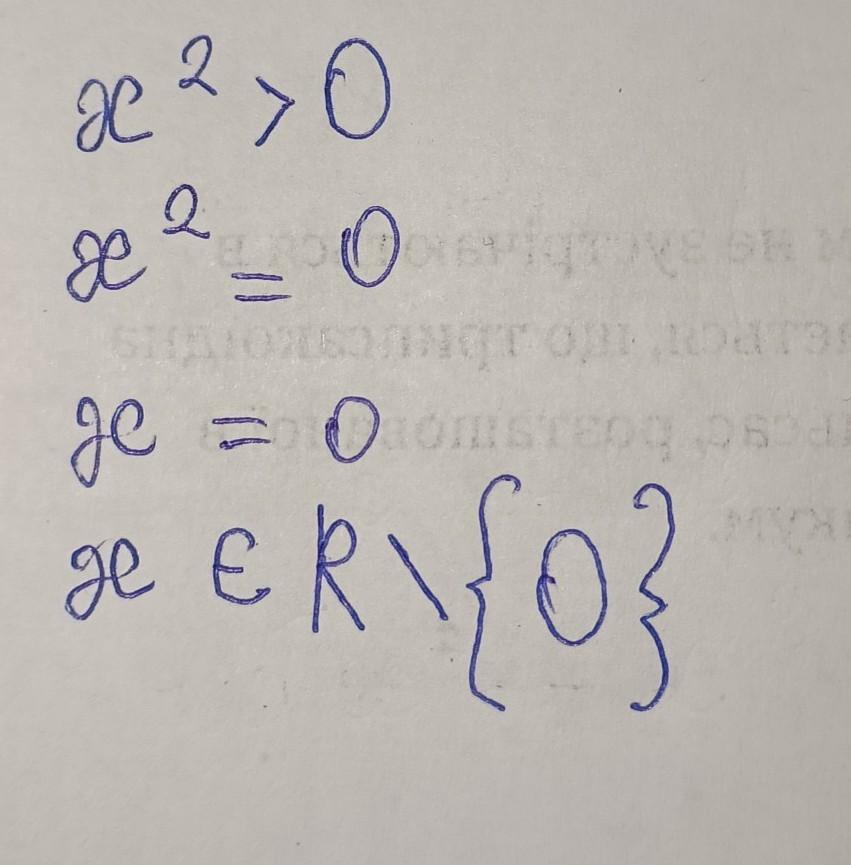 x² > 0
x² = 0
x = 0
x ∈ R \ {0}